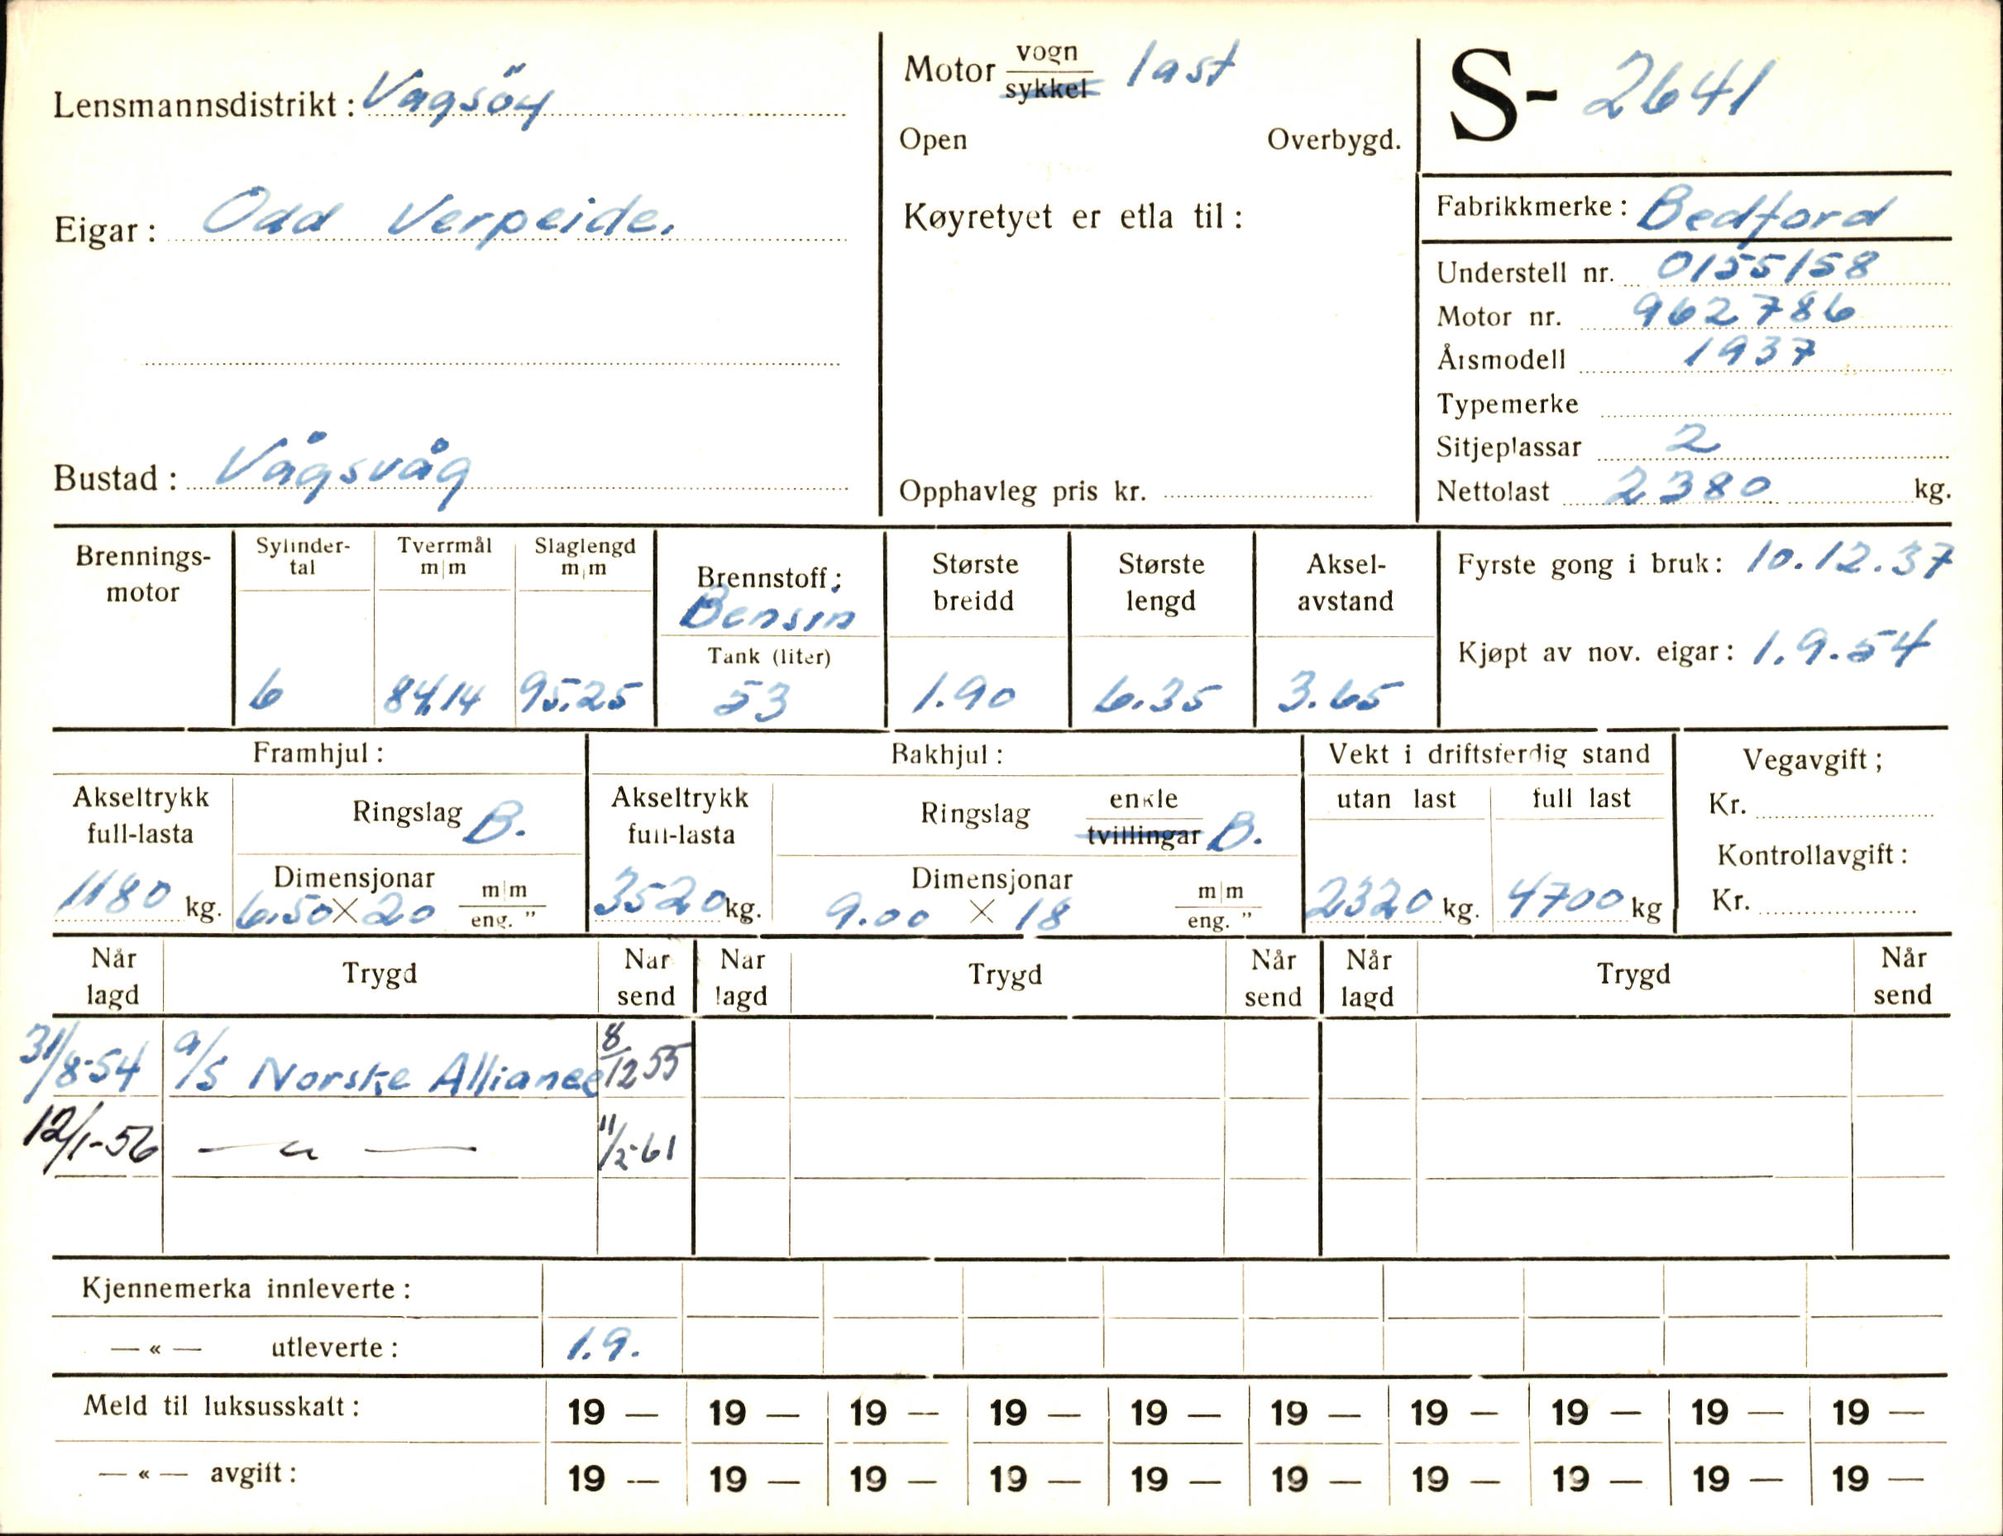 Lensmannsdistrikt: Vagsöy
Eigar: Odd Verpeide.
Bustad: Vågsvåg
Motor vogn / sykkel last
Open Overbygd.
Køyretyet er etla til:
Opphavleg pris kr.
S- 2641
Fabrikkmerke: Bedford
Understell nr. 0155158
Motor nr. 962786
Årsmodell 1937
Typemerke
Sitjeplassar 2
Nettolast 2380 kg.
Brennings-
motor
Sylinder-
tal
6
Tverrmål
m|m
84,14
Slaglengd
m|m
95,25
Brennstoff;
Bensin
Tank (liter)
53
Største
breidd
1.90
Største
lengd
6.35
Aksel-
avstand
3.65
Fyrste gong i bruk: 10.12.37
Kjøpt av nov. eigar: 1.9.54
Framhjul:
Akseltrykk
full-lasta
1180 kg.
Ringslag B.
Dimensjonar m|m
6.50 × 20 eng. "
Bakhjul:
Akseltrykk
full-lasta
3520 kg.
Ringslag enkle / tvillingar B.
Dimensjonar m|m
9.00 × 18 eng. "
Vekt i driftsferdig stand
utan last full last
2320 kg. 4700 kg
Vegavgift;
Kr.
Kontrollavgift:
Kr.
Når
lagd
Trygd
Nar
send
Nar
lagd
Trygd
Når
send
Når
lagd
Trygd
Når
send
31/8-54 a/s Norske Alliance 8/12 55
12/1-56 — " — 11/2-61
Kjennemerka innleverte:
— « — utleverte: 1.9.
Meld til luksusskatt: 19 — 19 — 19 — 19 — 19 — 19 — 19 — 19 — 19 — 19 —
— « — avgift: 19 — 19 — 19 — 19 — 19 — 19 — 19 — 19 — 19 — 19 —